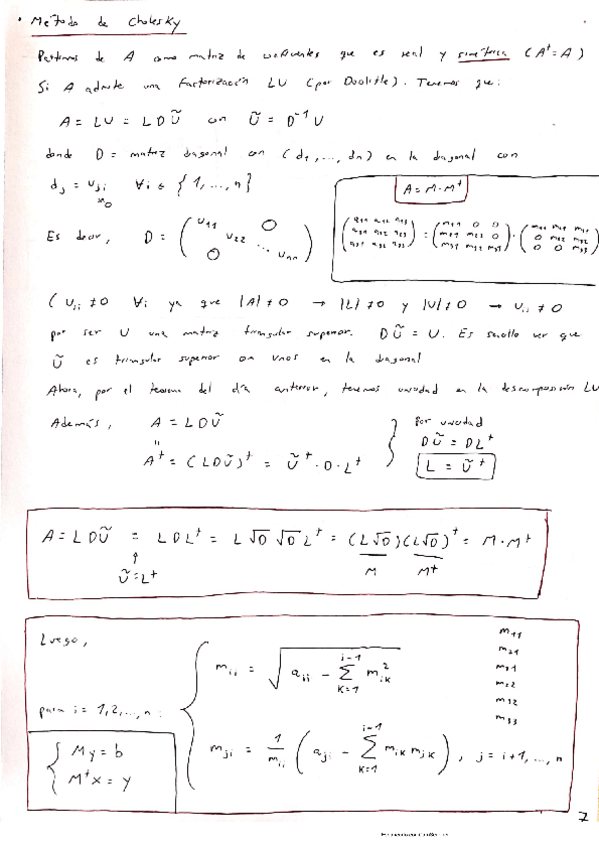 · Método de Cholesky
Partimos de A como matriz de coeficientes que es real y simétrica (Aᵗ = A)
Si A admite una factorización LU (por Doolitle). Tenemos que:
A = LU = LDŨ con Ũ = D⁻¹U
donde D = matriz diagonal con (d₁, ..., dn) en la diagonal con
dⱼ = uⱼᵢ ∀i ∈ {1, ..., n}
≠0
A = M·Mᵗ
(a11 a12 a13; a21 a22 a23; a31 a32 a33) = (m11 0 0; m21 m22 0; m31 m32 m33) · (m11 m21 m31; 0 m22 m32; 0 0 m33)
Es decir, D = (u11 u22 ... unn)
(uᵢᵢ ≠ 0 ∀i ya que |A| ≠ 0 → |L| ≠ 0 y |U| ≠ 0 → uᵢᵢ ≠ 0
por ser U una matriz triangular superior. DŨ = U. Es sencillo ver que
Ũ es triangular superior con unos en la diagonal
Ahora, por el teorema del día anterior, tenemos unicidad en la descomposición LU
Además, A = LDŨ
"
Aᵗ = (LDŨ)ᵗ = Ũᵗ·D·Lᵗ
Por unicidad
DŨ = DLᵗ
L = Ũᵗ
A = LDŨ = LDLᵗ = L√D √D Lᵗ = (L√D)(L√D)ᵗ = M·Mᵗ
↑
Ũ=Lᵗ
M Mᵗ
Luego,
para i = 1,2,...,n :
mᵢᵢ = √(aᵢᵢ − Σ_{k=1}^{i-1} mᵢₖ²)
mⱼᵢ = 1/mᵢᵢ (aⱼᵢ − Σ_{k=1}^{i-1} mᵢₖ mⱼₖ), j = i+1, ..., n
m11
m21
m31
m22
m32
m33
My = b
Mᵗx = y
7